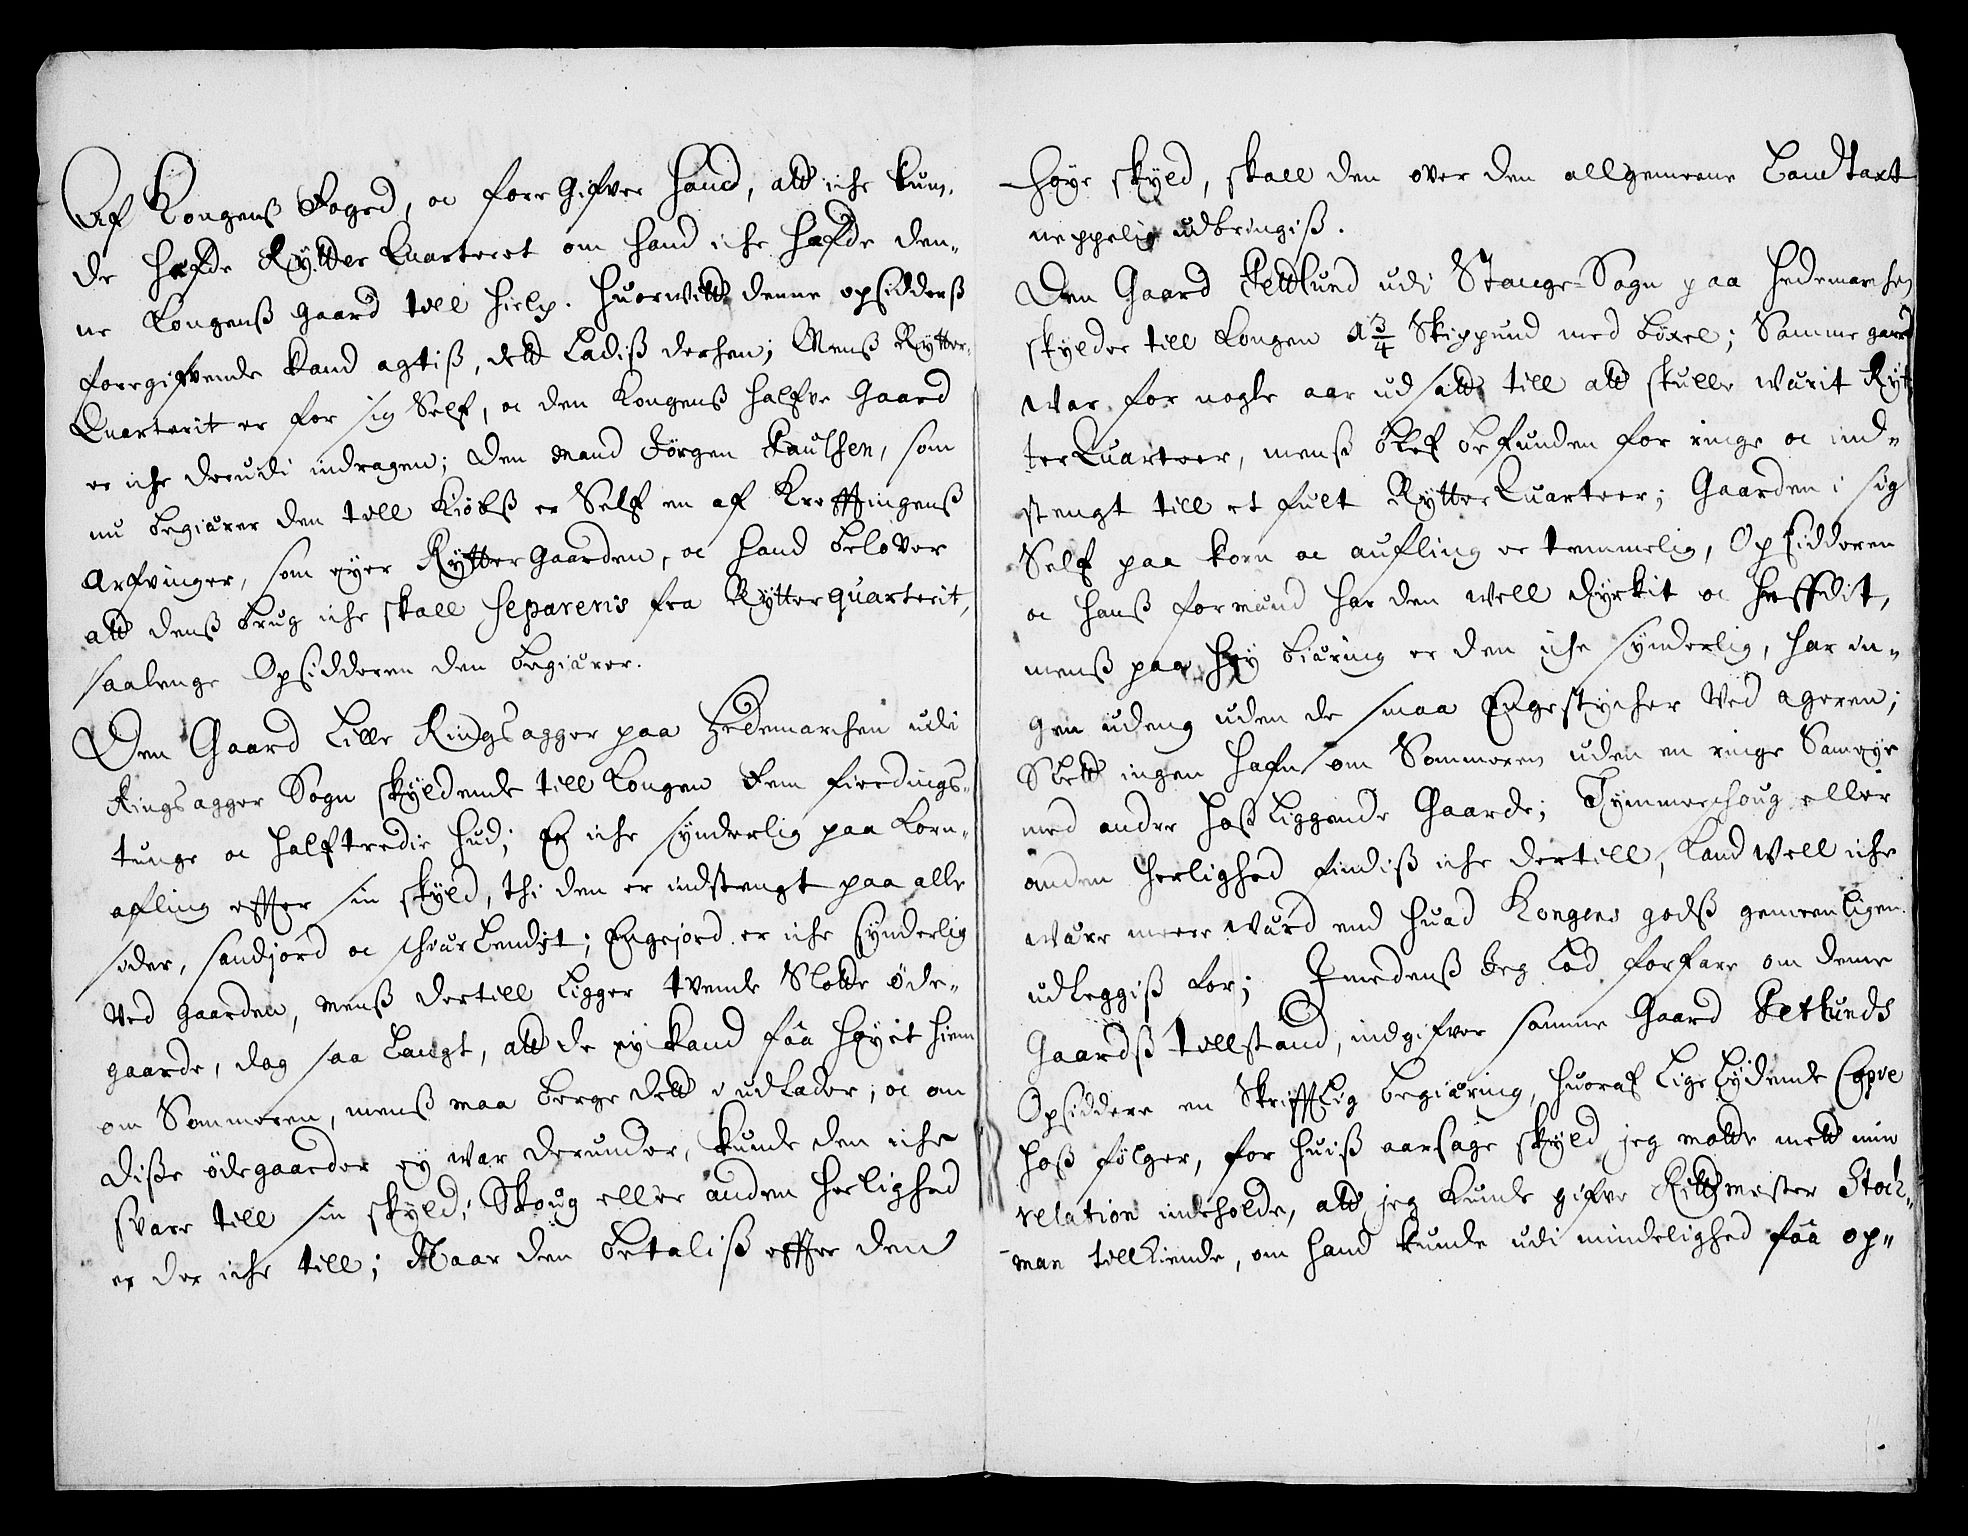 Af Kongenß Foged, oc foregifver hand, att iche kun-
de hefde Rytter Quarteret om hand iche hafde den-
ne Kongenß gaard till hielp. Huorwitt denne opsidderß
foregifvende kand agtiß, dett Ladiß derhen; Menß Rytter-
Quarterit er for sig Self, oc den Kongenß halfve Gaard
er iche derudi indragen; Den Mand Jørgen Paulsen, som
nu begiærer den till Kiøbß er Self en af Kreffingenß
Arfvinger, som eyer Ryttergaarden, oc hand belover
att denß brug iche skall separeris fra Rytterquarterit,
saalenge Opsidderen den begiærer.
Den Gaard Lille Ringsagger paa Hedemarchen udi
Ringsagger Sogn skyldende till Kongen Fem fierdings-
tunge oc halftredie hud; Er iche synderlig paa Korn-
afling effter sin skyld, thi den er indstengt paa alle
sider, sandjord oc schwar Lendet; Engejord er iche synderlig
Ved gaarden, menß dertill Ligger tvende Slette øde-
gaarde, dog saa Langt, att de ey kand faa høyit hiem
om Sommeren, menß maa berge dett i udLader; oc om
disse ødegaarder ey war derunder, kunde den iche
svare till sin skyld; Skoug eller anden herlighed
er der iche till; Naar den betaliß effter den
høye skyld, skall den over den allgemeene Landtaxt
neppelig udbringiß.
Den Gaard Pettlund udi Stange-Sogn paa Hedemarchen
skylder till Kongen 1 3/4 Skippund med bøxel; Samme gaard
war for nogle aar udsatt till att skulle wærit Ryt-
terQuarteer, menß blef befunden for ringe oc ind-
stengt till et fult RytterQuarteer; Gaarden i sig
Self paa korn oc aufling er temmelig, Opsidderen
oc hanß formand har den well dyrkit oc heffdit,
menß paa høy biæring er den iche synderlig, har in-
gen udeng uden de smaa Engestycher Ved ageren;
Slett ingen hafn om Sommeren uden en ringe Sameye
med andre hoß Liggende Gaarde; Tymmerhoug eller
anden herlighed findiß iche dertill, kand well iche
wære meere wærd end huad Kongens godß gemeenligen
udLeggiß for; Imedenß Jeg Lod forfare om denne
Gaardß tillstand, indgifver samme Gaard Petlunds
Opsiddere en Skrifftlig begiæring, huoraf Lige Lydende Copie
hoß følger, for huiß aarsage skyld jeg motte mett min
relation indeholde, att jeg kunde gifve Rittmester Stoch-
man tillkiende, om hand kunde udi mindelighed faa op-